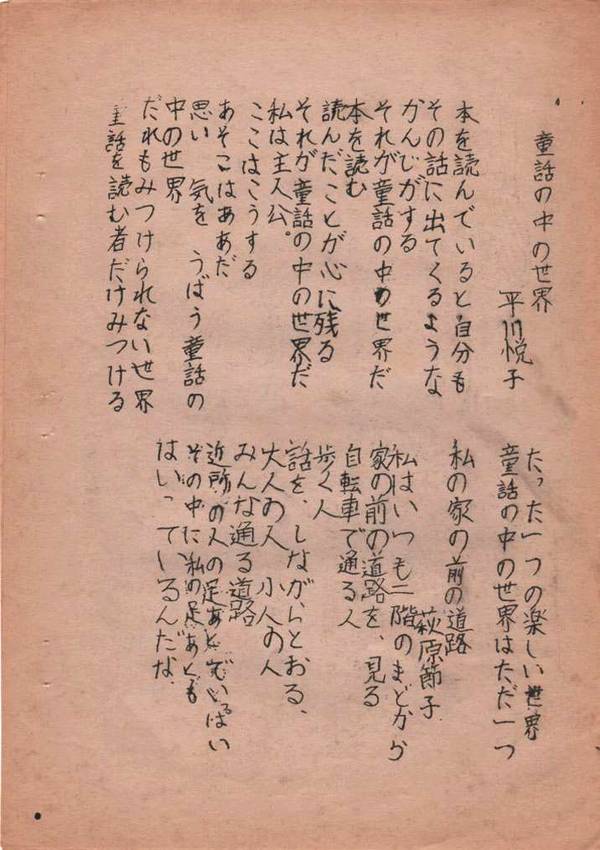 童話の中の世界
平川悦子
本を読んでいると自分も
その話に出てくるような
かんじがする
それが童話の中の世界だ
本を読む
読んだことが心に残る
それが童話の中の世界だ
私は主人公。
ここはこうする
あそこはああだ
思い 気を うばう童話の
中の世界
だれもみつけられない世界
童話を読む者だけみつける
たった一つの楽しい世界
童話の中の世界はただ一つ
私の家の前の道路
萩原節子
私はいつも二階のまどから
家の前の道路を、見る
自転車で通る人
歩く人
話を、しながらとおる、
大人の人 小人の人
みんな通る道路
近所の人の足あとでいっぱい
その中に私の足あとも
はいっているんだな